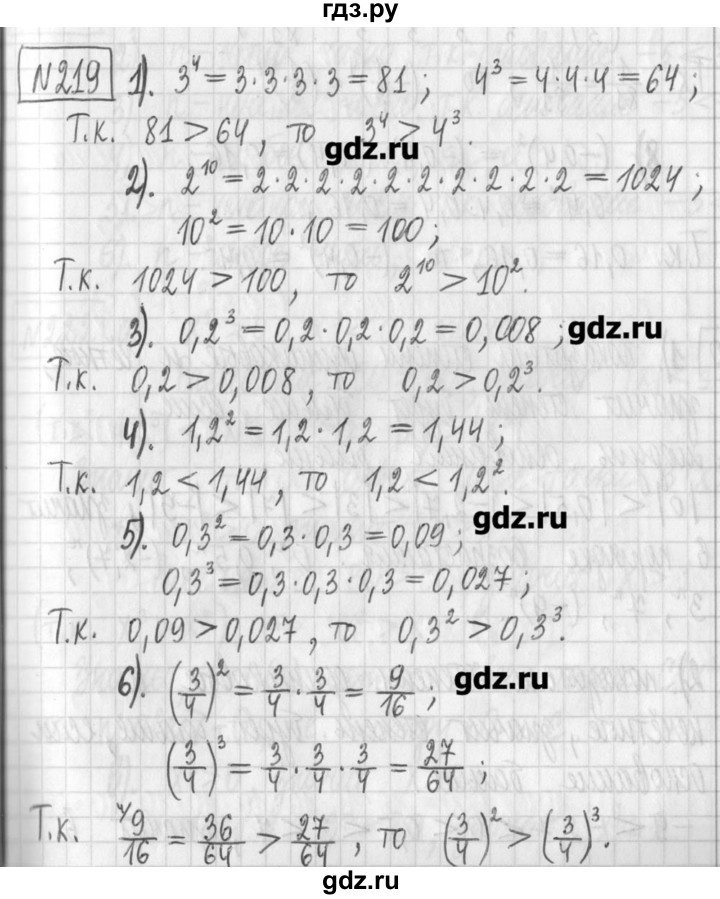 гдз.ру
№219 1). 3⁴ = 3·3·3·3 = 81; 4³ = 4·4·4 = 64;
Т.к. 81 > 64, то 3⁴ > 4³.
gdz.ru
2). 2¹⁰ = 2·2·2·2·2·2·2·2·2·2 = 1024;
10² = 10·10 = 100;
Т.к. 1024 > 100, то 2¹⁰ > 10².
3). 0,2³ = 0,2·0,2·0,2 = 0,008; gdz.ru
Т.к. 0,2 > 0,008, то 0,2 > 0,2³.
4). 1,2² = 1,2·1,2 = 1,44;
Т.к. 1,2 < 1,44, то 1,2 < 1,2².
5). 0,3² = 0,3·0,3 = 0,09; gdz.ru
0,3³ = 0,3·0,3·0,3 = 0,027;
Т.к. 0,09 > 0,027, то 0,3² > 0,3³.
6). (3/4)² = 3/4 · 3/4 = 9/16; gdz.ru
(3/4)³ = 3/4 · 3/4 · 3/4 = 27/64;
Т.к. ⁴⁄9/16 = 36/64 > 27/64, то (3/4)² > (3/4)³.
gdz.ru